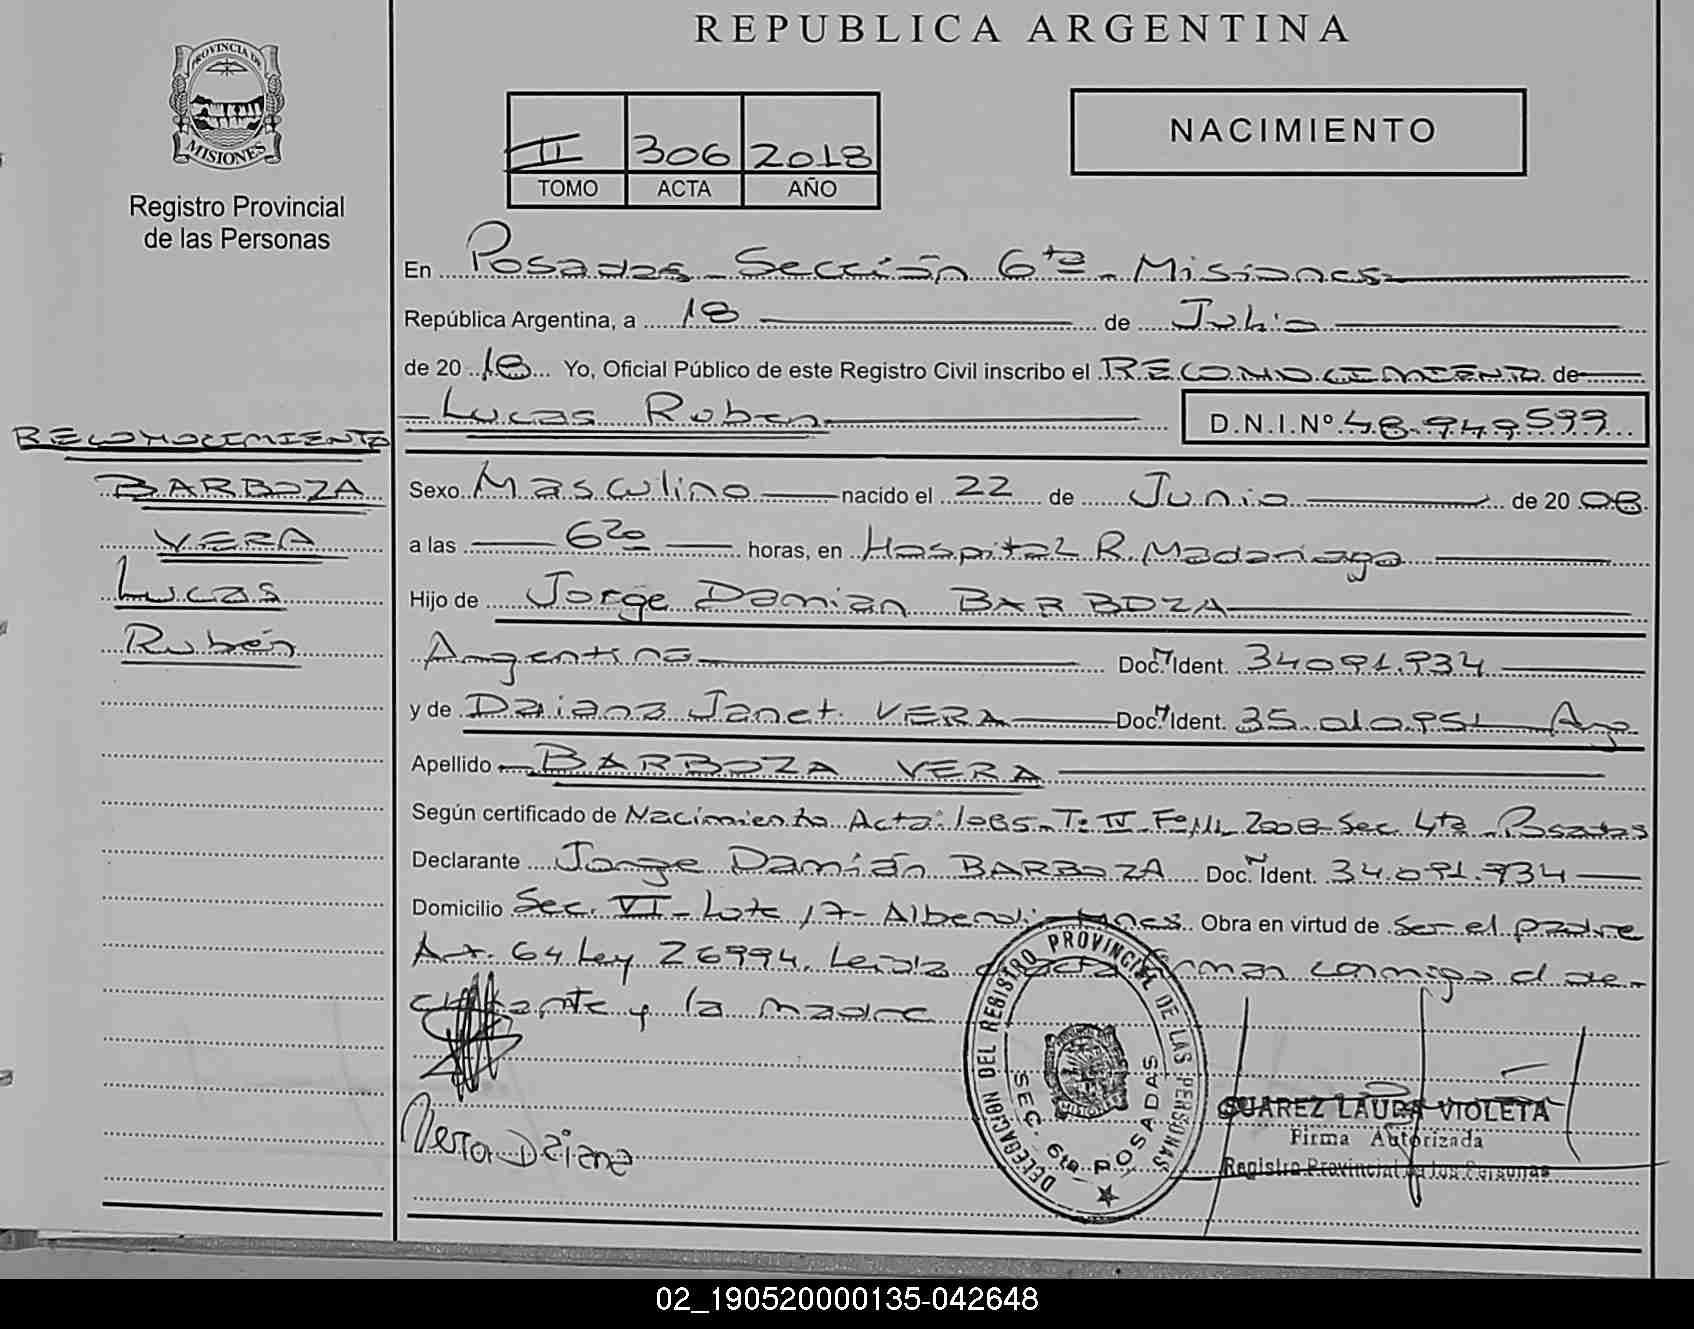 REPUBLICA ARGENTINA
PROVINCIA DE
MISIONES
Registro Provincial
de las Personas
II 306 2018
TOMO ACTA AÑO
NACIMIENTO
En Posadas Sección 6ta - Misiones
República Argentina, a 18 de Julio
de 2018 Yo, Oficial Público de este Registro Civil inscribo el RECONOCIMIENTO de
Lucas Ruben D.N.I.Nº 48.949.599
RECONOCIMIENTO
BARBOZA
VERA
Lucas
Rubén
Sexo Masculino nacido el 22 de Junio de 2008
a las 6 20 horas, en Hospital R. Madariaga
Hijo de Jorge Damián BARBOZA
Argentino Doc. Ident. 34091.934
y de Daiana Janet VERA Doc. Ident. 35.010951 Arg
Apellido BARBOZA VERA
Según certificado de Nacimiento Acta: 1085 - T: IV 2008 - Sec. 4ta - Posadas
Declarante Jorge Damián BARBOZA Doc. Ident. 34.091.934
Domicilio Sec. VI - Lote 17 - Mnes. Obra en virtud de Ser el padre
Art. 64 Ley 26994. Leída el acta firman conmigo el de-
clarante y la madre
Vera Daiana
DELEGACION DEL REGISTRO PROVINCIAL DE LAS PERSONAS
SEC. 6ta. POSADAS
SUAREZ LAURA VIOLETA
Firma Autorizada
Registro Provincial de las Personas
02_190520000135-042648